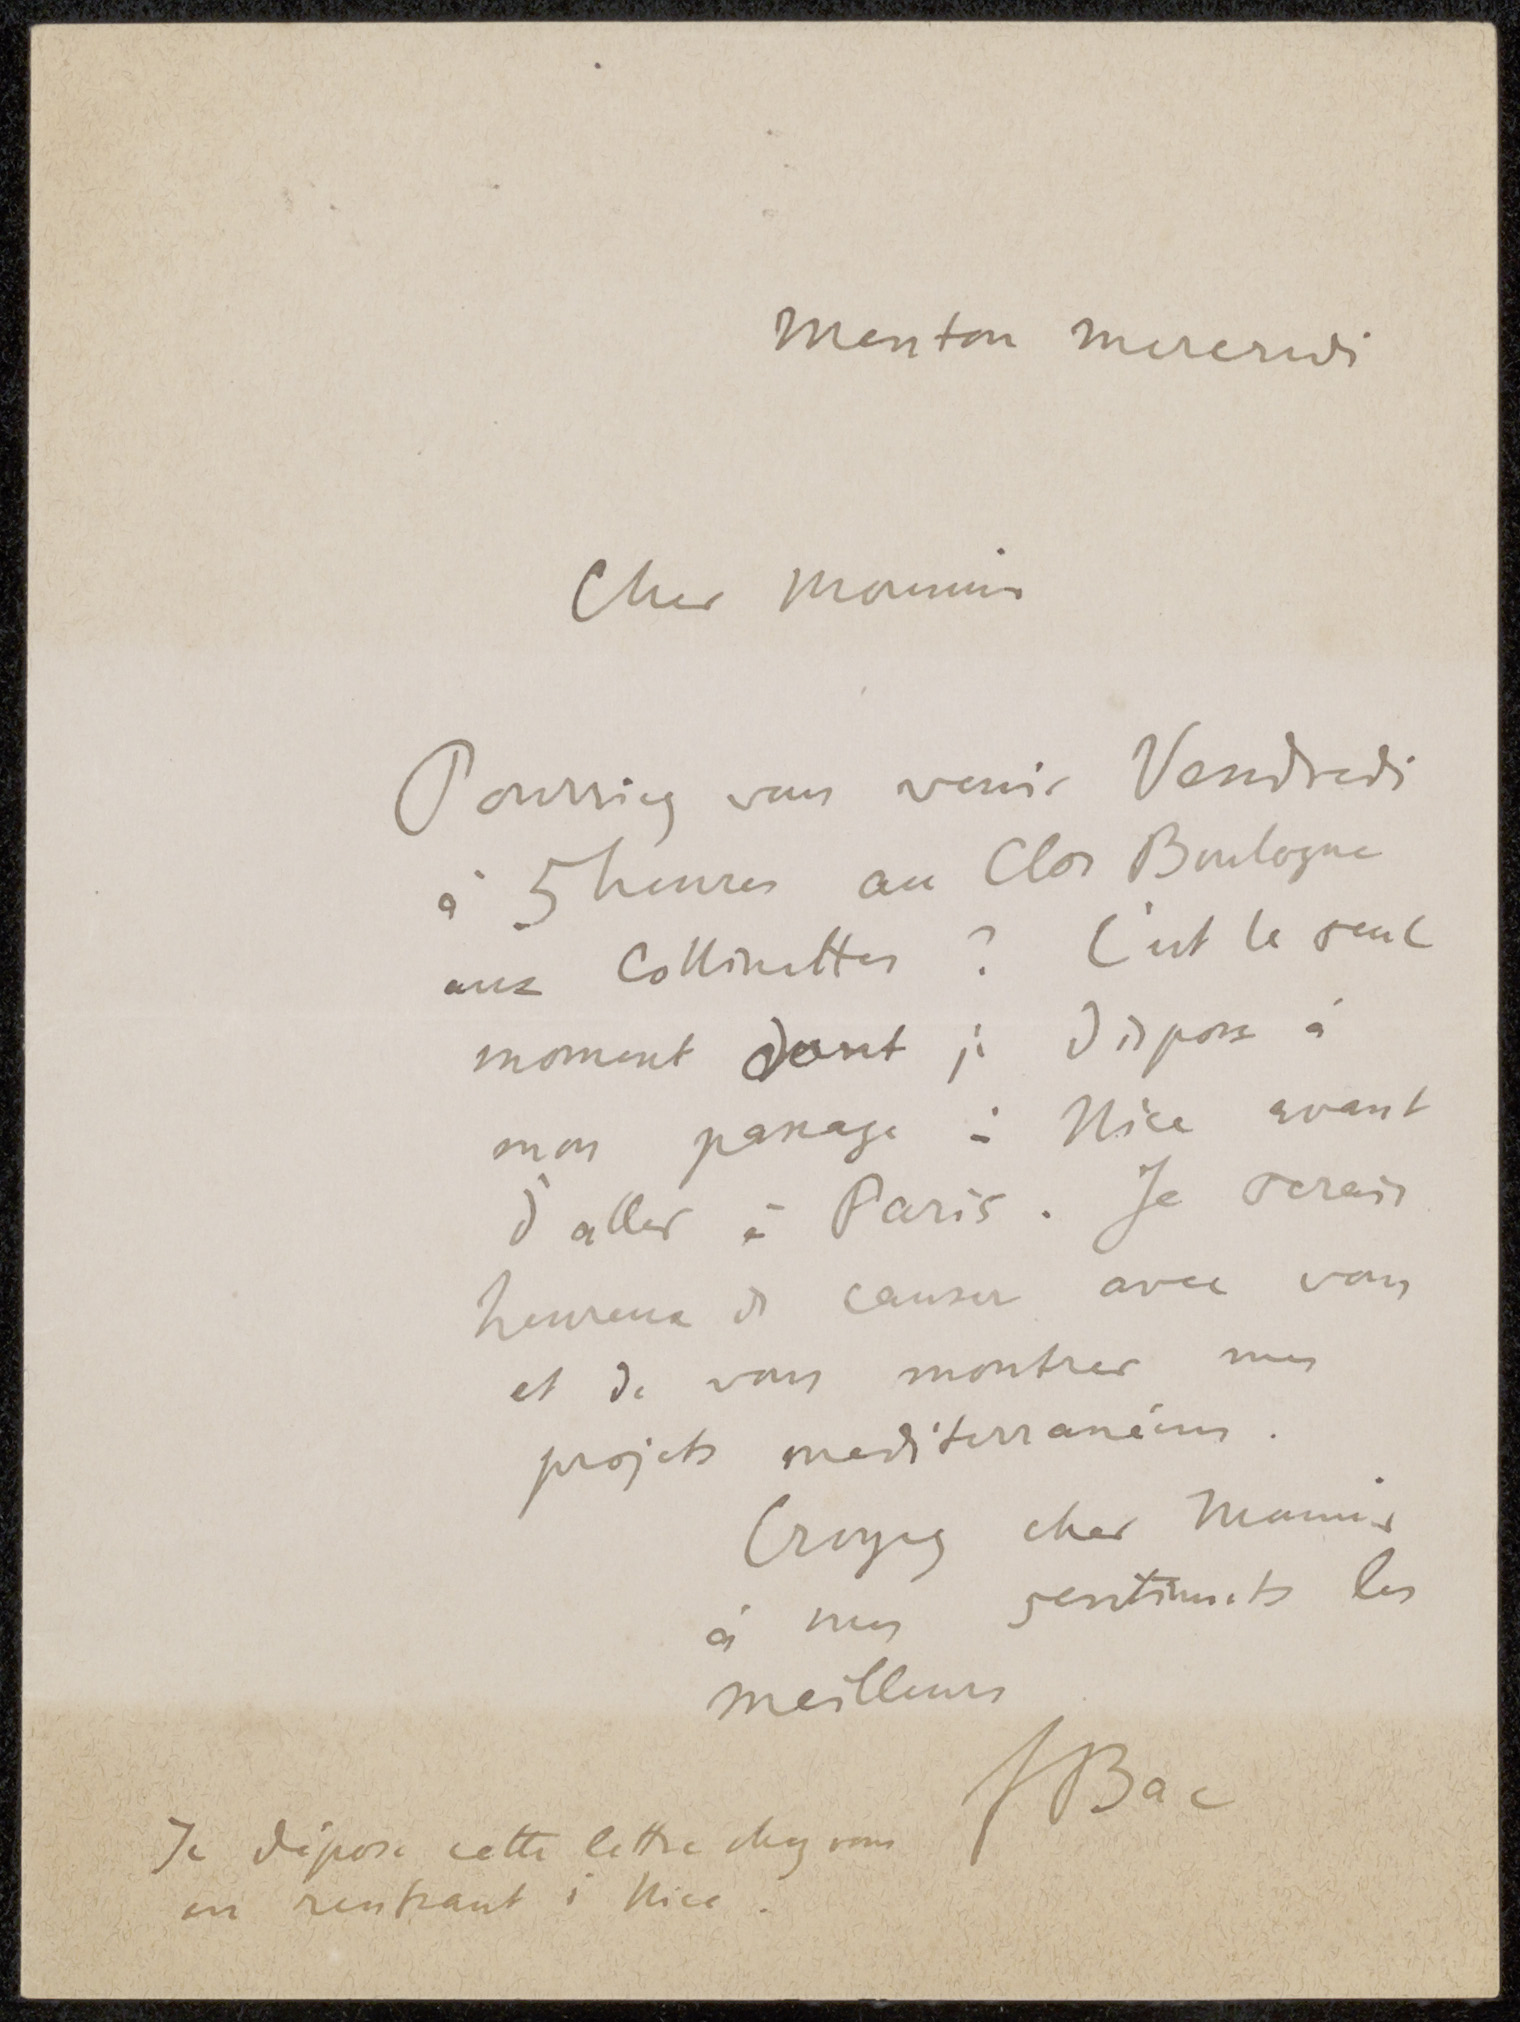 Menton Mercredi
Cher Monsieur
Pourriez vous venir Vendredi
à 5 heures au Clos Boulogne
aux Collinettes ? C'est le seul
moment dont je dispose à
mon passage à Nice avant
d'aller à Paris. Je serais
heureux de causer avec vous
et de vous montrer mes
projets mediterranéens.
Croyez cher Monsieur
à mes sentiments les
meilleurs
FBac
Je dépose cette lettre chez vous
en rentrant à Nice.